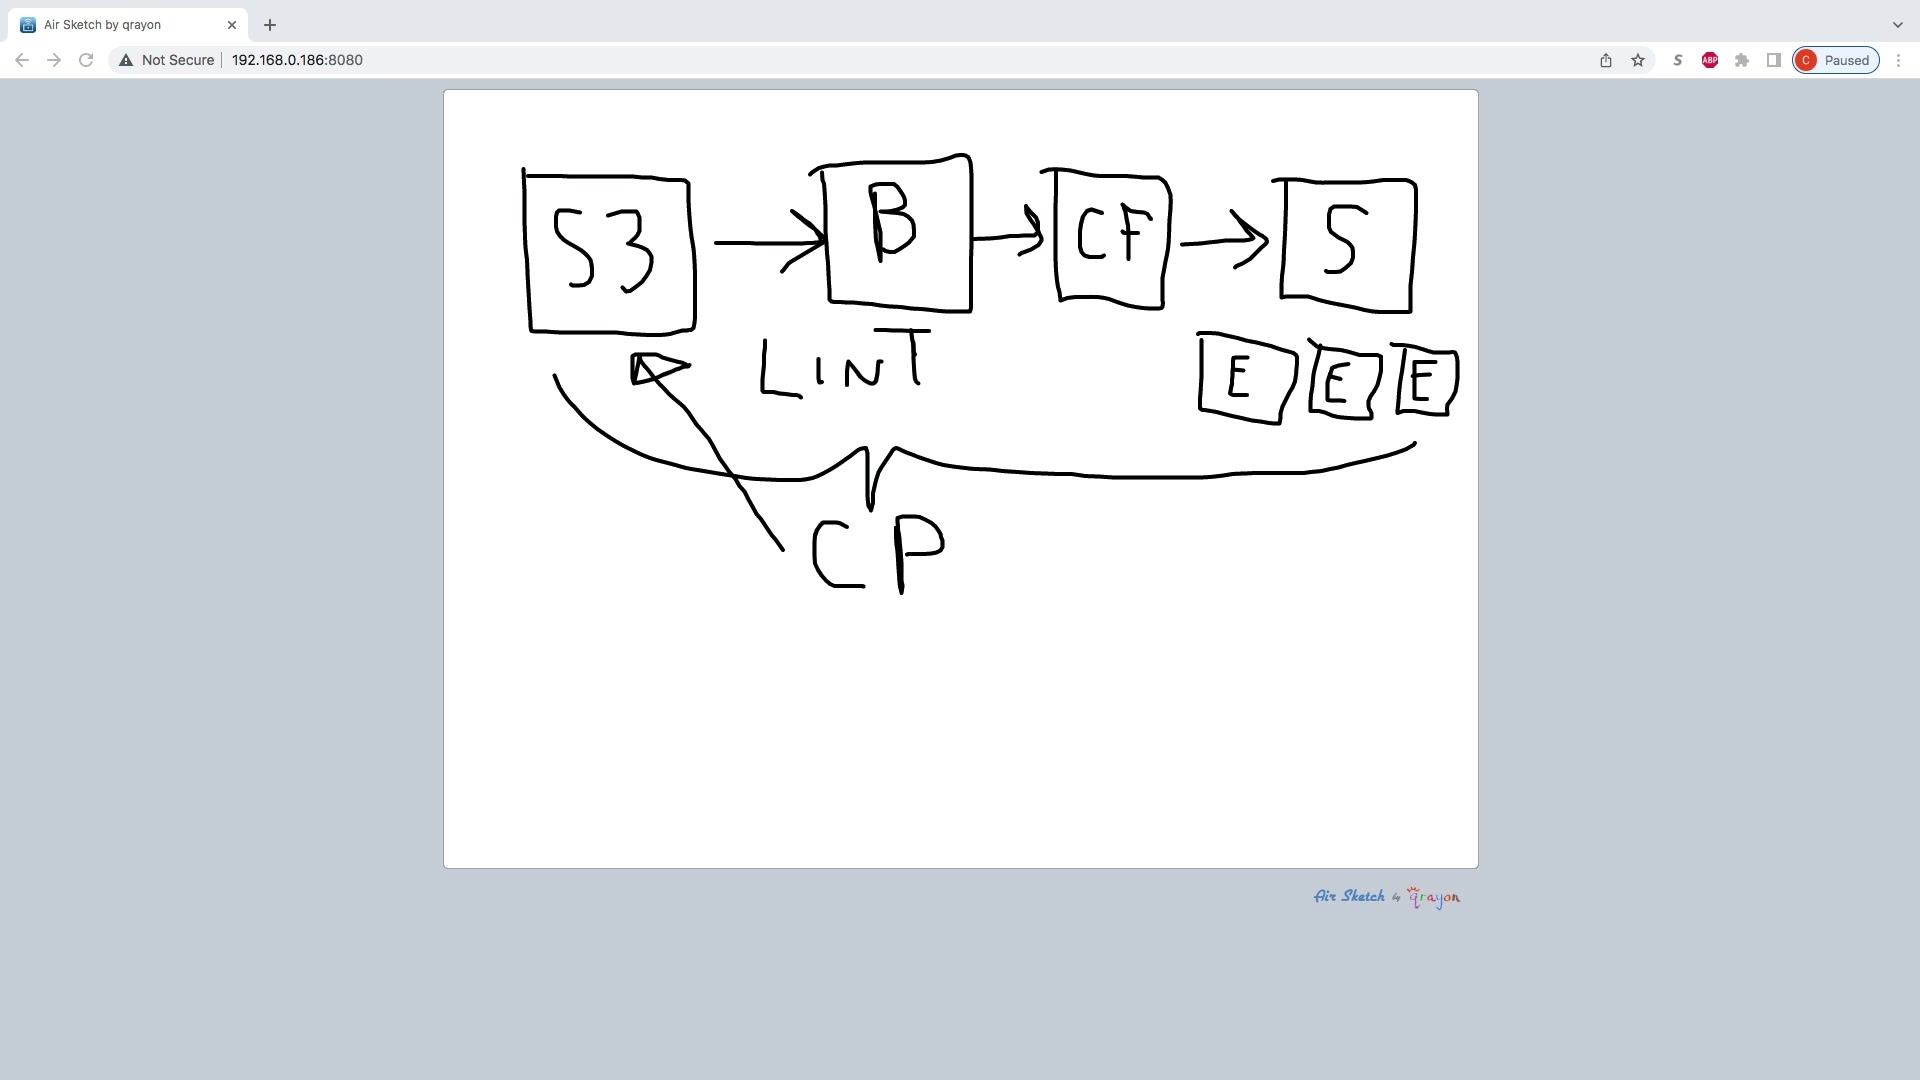 Air Sketch by qrayon
Not Secure
192.168.0.186:8080
S
ABP
C
Paused
S3
B
CF
S
LINT
E E E
CP
Air Sketch by qrayon